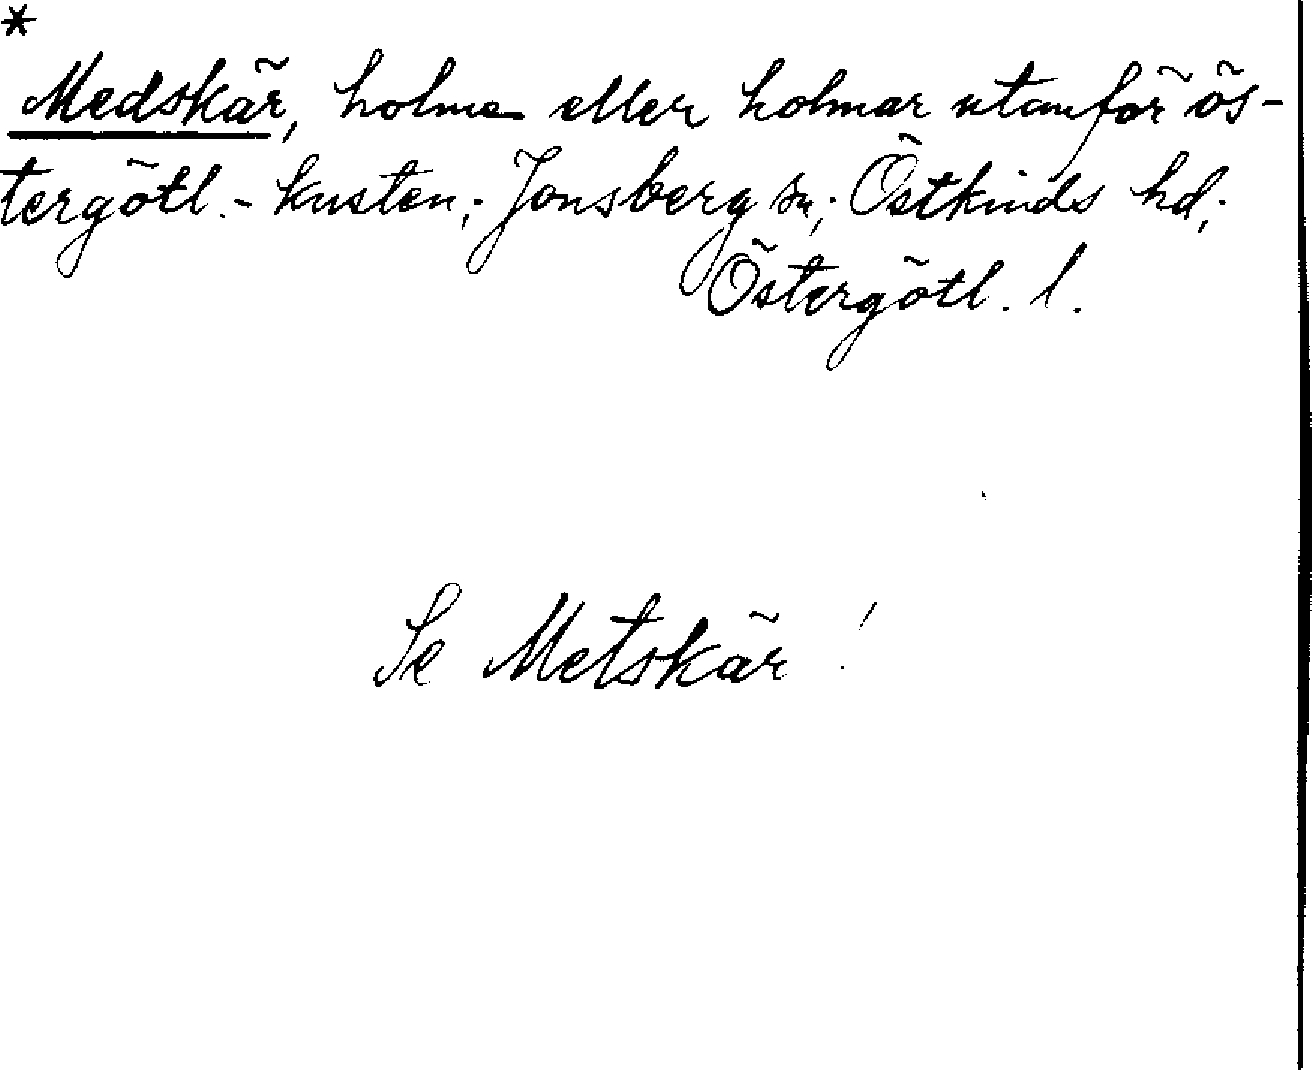 *
Medskär, holme eller holmar utanför ös-
tergötl.-kusten; Jonsberg sn; Östkinds hd;
Östergötl. l.
Se Metskär!